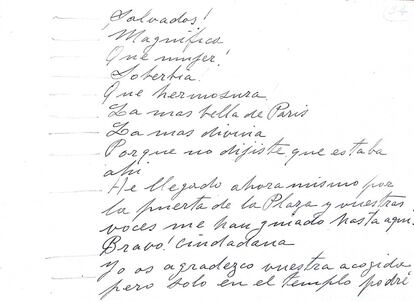 24
Salvados!
Magnífica
Que mujer!
Soberbia.
Que hermosura
La mas bella de Paris
La mas divina
Porque no dijiste que estaba
ahi
He llegado ahora mismo por
la puerta de la Plaza y vuestras
voces me han guiado hasta aqui.
Bravo! Ciudadana
Yo os agradezco vuestra acogida
pero solo en el templo podré